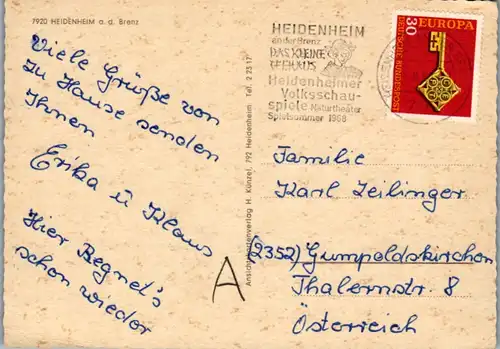 7920 HEIDENHEIM a. d. Brenz
Viele Grüße von
zu Hause senden
Ihnen
Erika u Klaus
Hier Regnet's
schon wieder
A
Ansichtskartenverlag H. Künzel, 792 Heidenheim Tel. 2 23 17
HEIDENHEIM
an der Brenz
DAS KLEINE
TEEHAUS
Heidenheimer
Volksschau-
spiele Naturtheater
Spielsommer 1968
30 EUROPA
DEUTSCHE BUNDESPOST
Familie
Karl Zeilinger
(2352) Gumpoldskirchen
Thalernstr. 8
Österreich